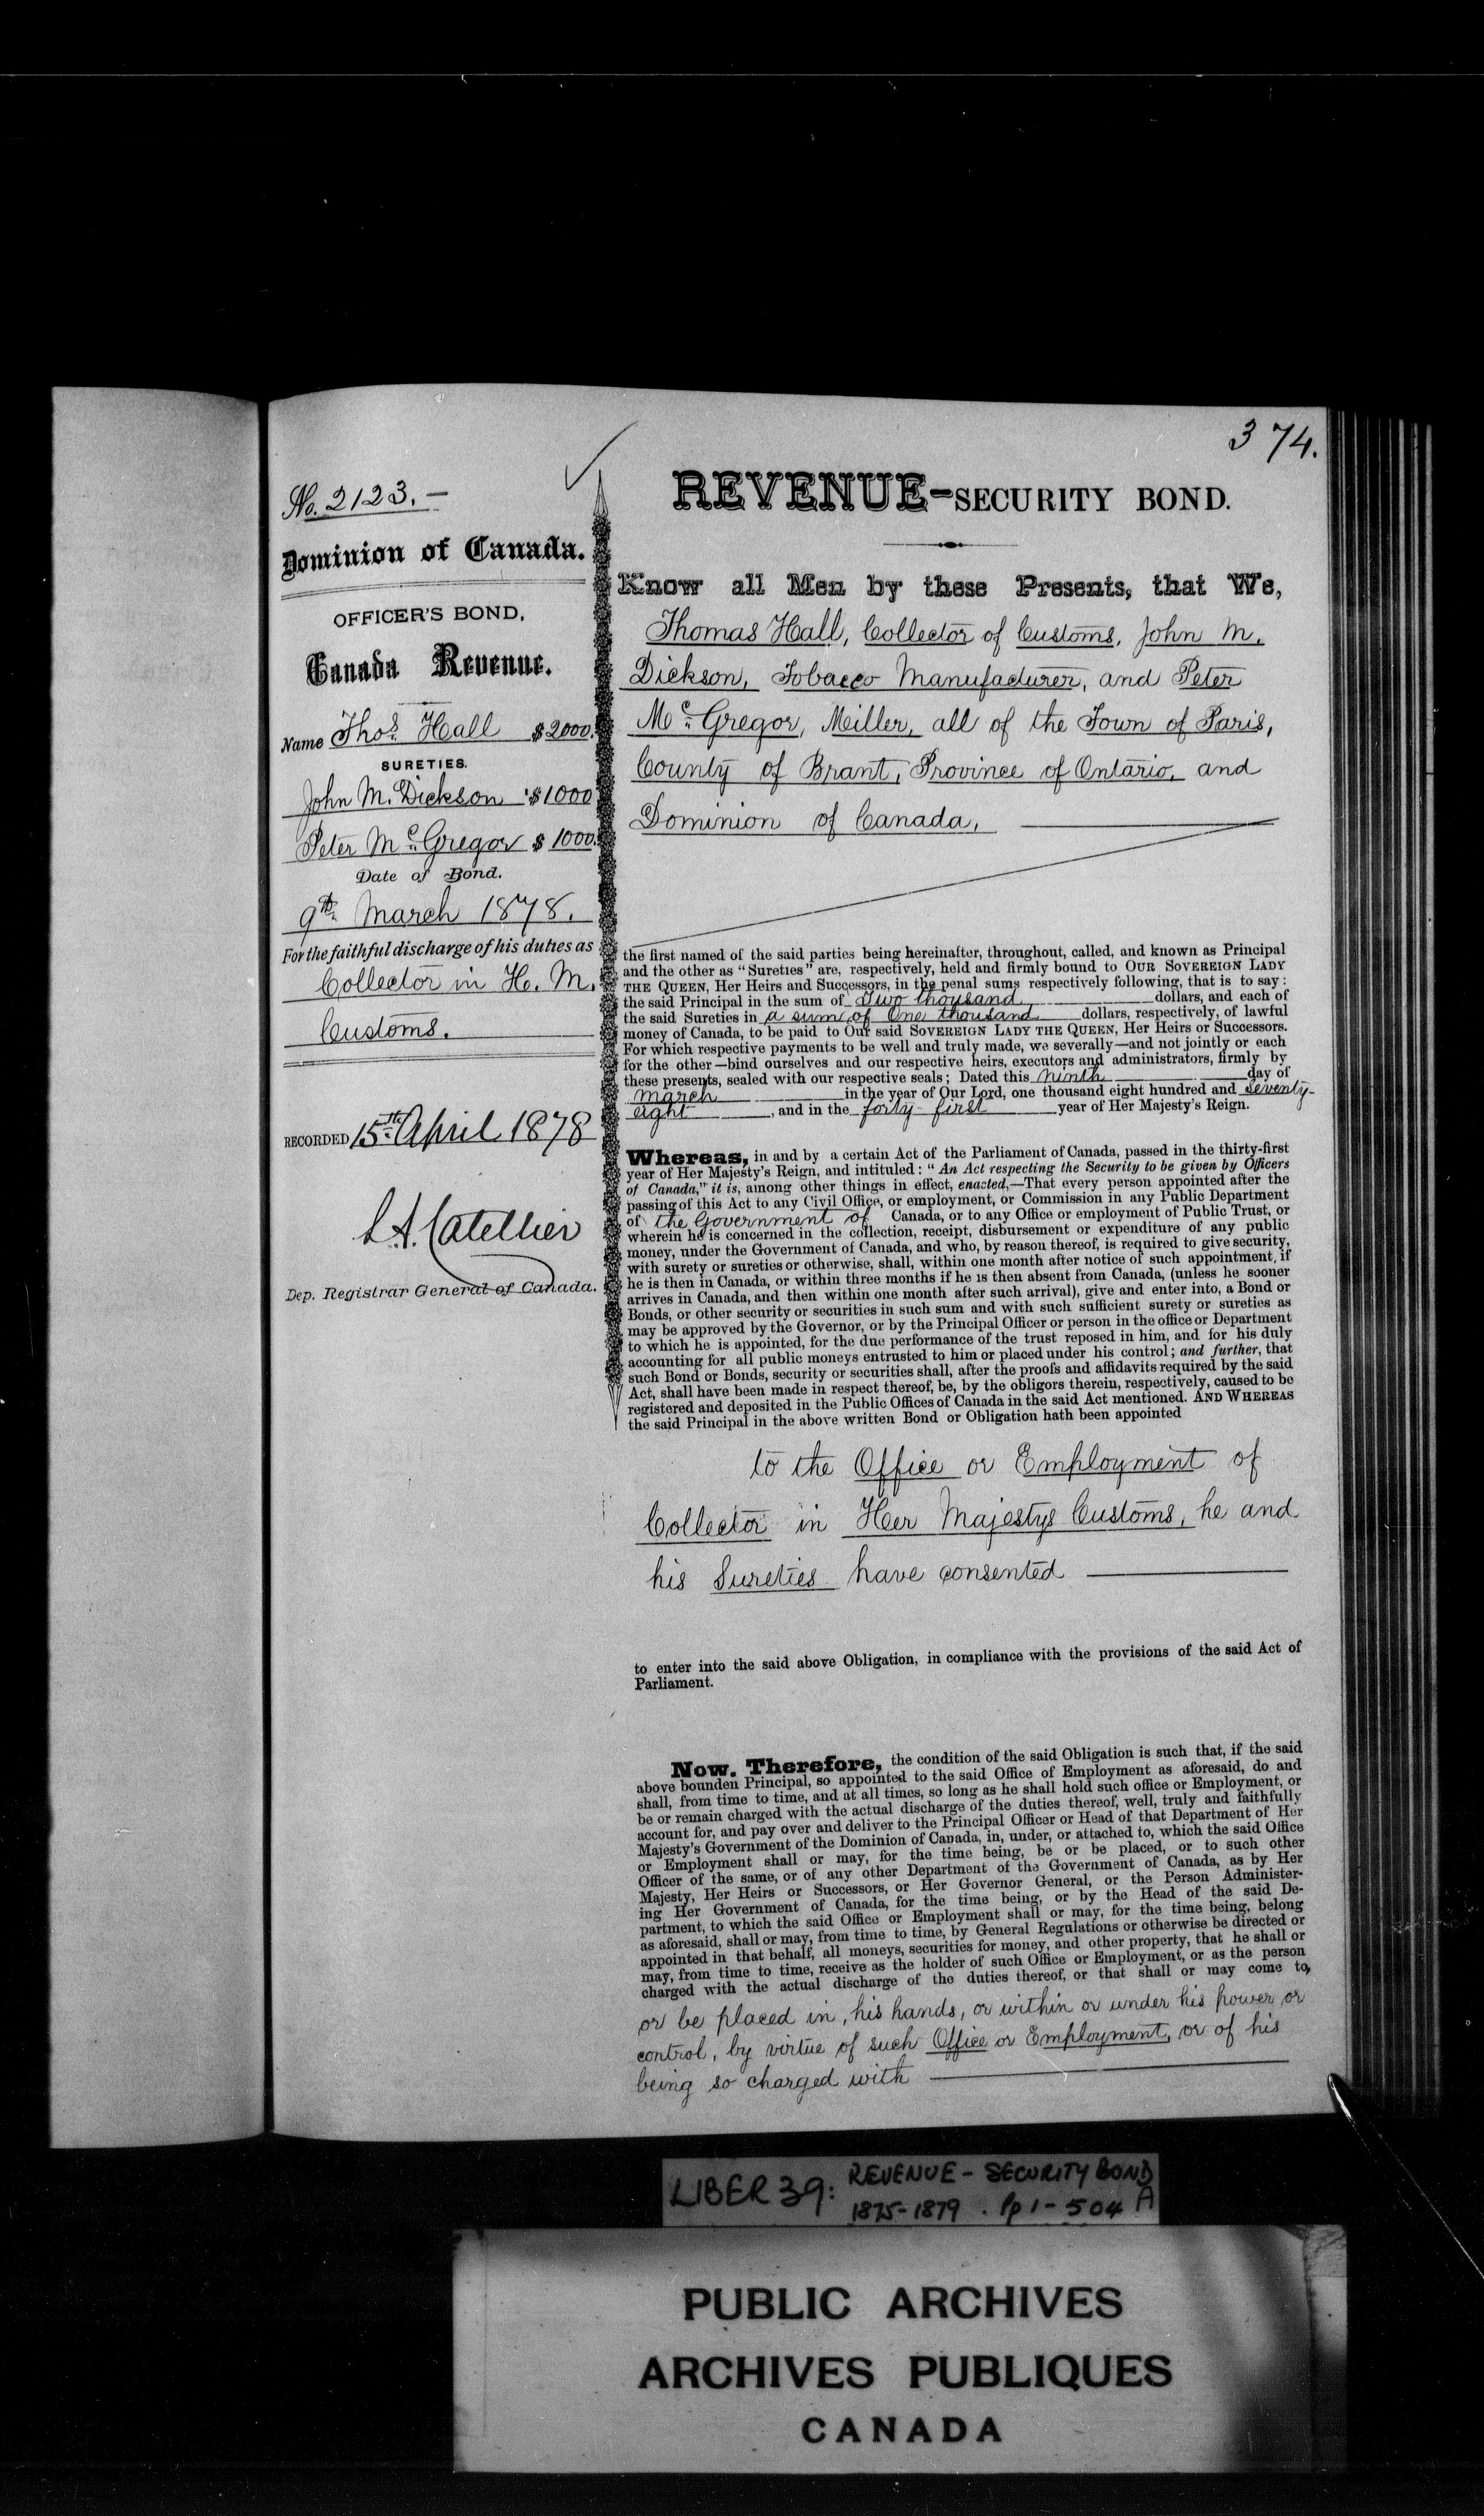 374.
No. 2123. –
Dominion of Canada.
OFFICER'S BOND,
Canada Revenue.
Name Thos. Hall $2000.
SURETIES.
John M. Dickson $1000
Peter Mc. Gregor $1000.
Date of Bond.
9th. March 1878.
For the faithful discharge of his duties as
Collector in H. M.
Customs.
RECORDED 15th. April 1878
L. A. Catellier
Dep. Registrar General of Canada.
REVENUE-SECURITY BOND.
Know all Men by these Presents, that We,
Thomas Hall, Collector of Customs, John M.
Dickson, Tobacco Manufacturer, and Peter
Mc. Gregor, Miller, all of the Town of Paris,
County of Brant, Province of Ontario, and
Dominion of Canada,
the first named of the said parties being hereinafter, throughout, called, and known as Principal
and the other as "Sureties" are, respectively, held and firmly bound to OUR SOVEREIGN LADY
THE QUEEN, Her Heirs and Successors, in the penal sums respectively following, that is to say:
the said Principal in the sum of Two thousand dollars, and each of
the said Sureties in a sum of One thousand dollars, respectively, of lawful
money of Canada, to be paid to Our said SOVEREIGN LADY THE QUEEN, Her Heirs or Successors.
For which respective payments to be well and truly made, we severally—and not jointly or each
for the other—bind ourselves and our respective heirs, executors and administrators, firmly by
these presents, sealed with our respective seals; Dated this ninth day of
March in the year of Our Lord, one thousand eight hundred and seventy-
eight, and in the forty-first year of Her Majesty's Reign.
Whereas, in and by a certain Act of the Parliament of Canada, passed in the thirty-first
year of Her Majesty's Reign, and intituled: "An Act respecting the Security to be given by Officers
of Canada," it is, among other things in effect, enacted,—That every person appointed after the
passing of this Act to any Civil Office, or employment, or Commission in any Public Department
of the Government of Canada, or to any Office or employment of Public Trust, or
wherein he is concerned in the collection, receipt, disbursement or expenditure of any public
money, under the Government of Canada, and who, by reason thereof, is required to give security,
with surety or sureties or otherwise, shall, within one month after notice of such appointment, if
he is then in Canada, or within three months if he is then absent from Canada, (unless he sooner
arrives in Canada, and then within one month after such arrival), give and enter into, a Bond or
Bonds, or other security or securities in such sum and with such sufficient surety or sureties as
may be approved by the Governor, or by the Principal Officer or person in the office or Department
to which he is appointed, for the due performance of the trust reposed in him, and for his duly
accounting for all public moneys entrusted to him or placed under his control; and further, that
such Bond or Bonds, security or securities shall, after the proofs and affidavits required by the said
Act, shall have been made in respect thereof, be, by the obligors therein, respectively, caused to be
registered and deposited in the Public Offices of Canada in the said Act mentioned. AND WHEREAS
the said Principal in the above written Bond or Obligation hath been appointed
to the Office or Employment of
Collector in Her Majestys Customs, he and
his Sureties have consented
to enter into the said above Obligation, in compliance with the provisions of the said Act of
Parliament.
Now, Therefore, the condition of the said Obligation is such that, if the said
above bounden Principal, so appointed to the said Office of Employment as aforesaid, do and
shall, from time to time, and at all times, so long as he shall hold such office or Employment, or
be or remain charged with the actual discharge of the duties thereof, well, truly and faithfully
account for, and pay over and deliver to the Principal Officer or Head of that Department of Her
Majesty's Government of the Dominion of Canada, in, under, or attached to, which the said Office
or Employment shall or may, for the time being, be or be placed, or to such other
Officer of the same, or of any other Department of the Government of Canada, as by Her
Majesty, Her Heirs or Successors, or Her Governor General, or the Person Administer-
ing Her Government of Canada, for the time being, or by the Head of the said De-
partment, to which the said Office or Employment shall or may, for the time being, belong
as aforesaid, shall or may, from time to time, by General Regulations or otherwise be directed or
appointed in that behalf, all moneys, securities for money, and other property, that he shall or
may, from time to time, receive as the holder of such Office or Employment, or as the person
charged with the actual discharge of the duties thereof, or that shall or may come to,
or be placed in, his hands, or within or under his power or
control, by virtue of such Office or Employment, or of his
being so charged with
LIBER 39: REVENUE - SECURITY BOND
1875-1879 . Pp 1-504 A
PUBLIC ARCHIVES
ARCHIVES PUBLIQUES
CANADA